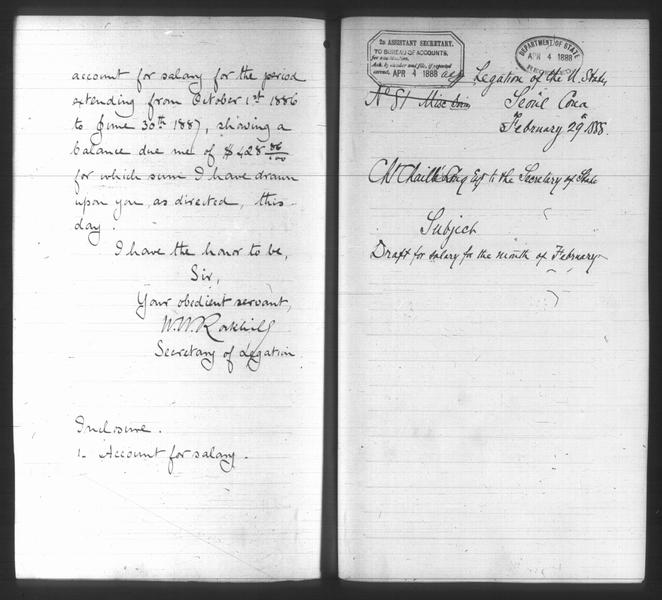 account for salary for the period
extending from October 1st 1886
to June 30th 1887, showing a
balance due me of $428 86/100
for which sum I have drawn
upon you, as directed, this
day.
I have the honor to be,
Sir,
Your obedient servant,
W.W. Rockhill
Secretary of Legation.
Inclosure.
1. Account for salary.
2D ASSISTANT SECRETARY.
TO BUREAU OF ACCOUNTS.
for examination.
APR 4 1888
DEPARTMENT OF STATE
APR 4 1888
Legation of the U. States
No 81 Misc
Seoul Corea
February 29th 1888.
Ch. Chaillé Long Esq to the Secretary of State
Subject
Draft for salary for the month of February